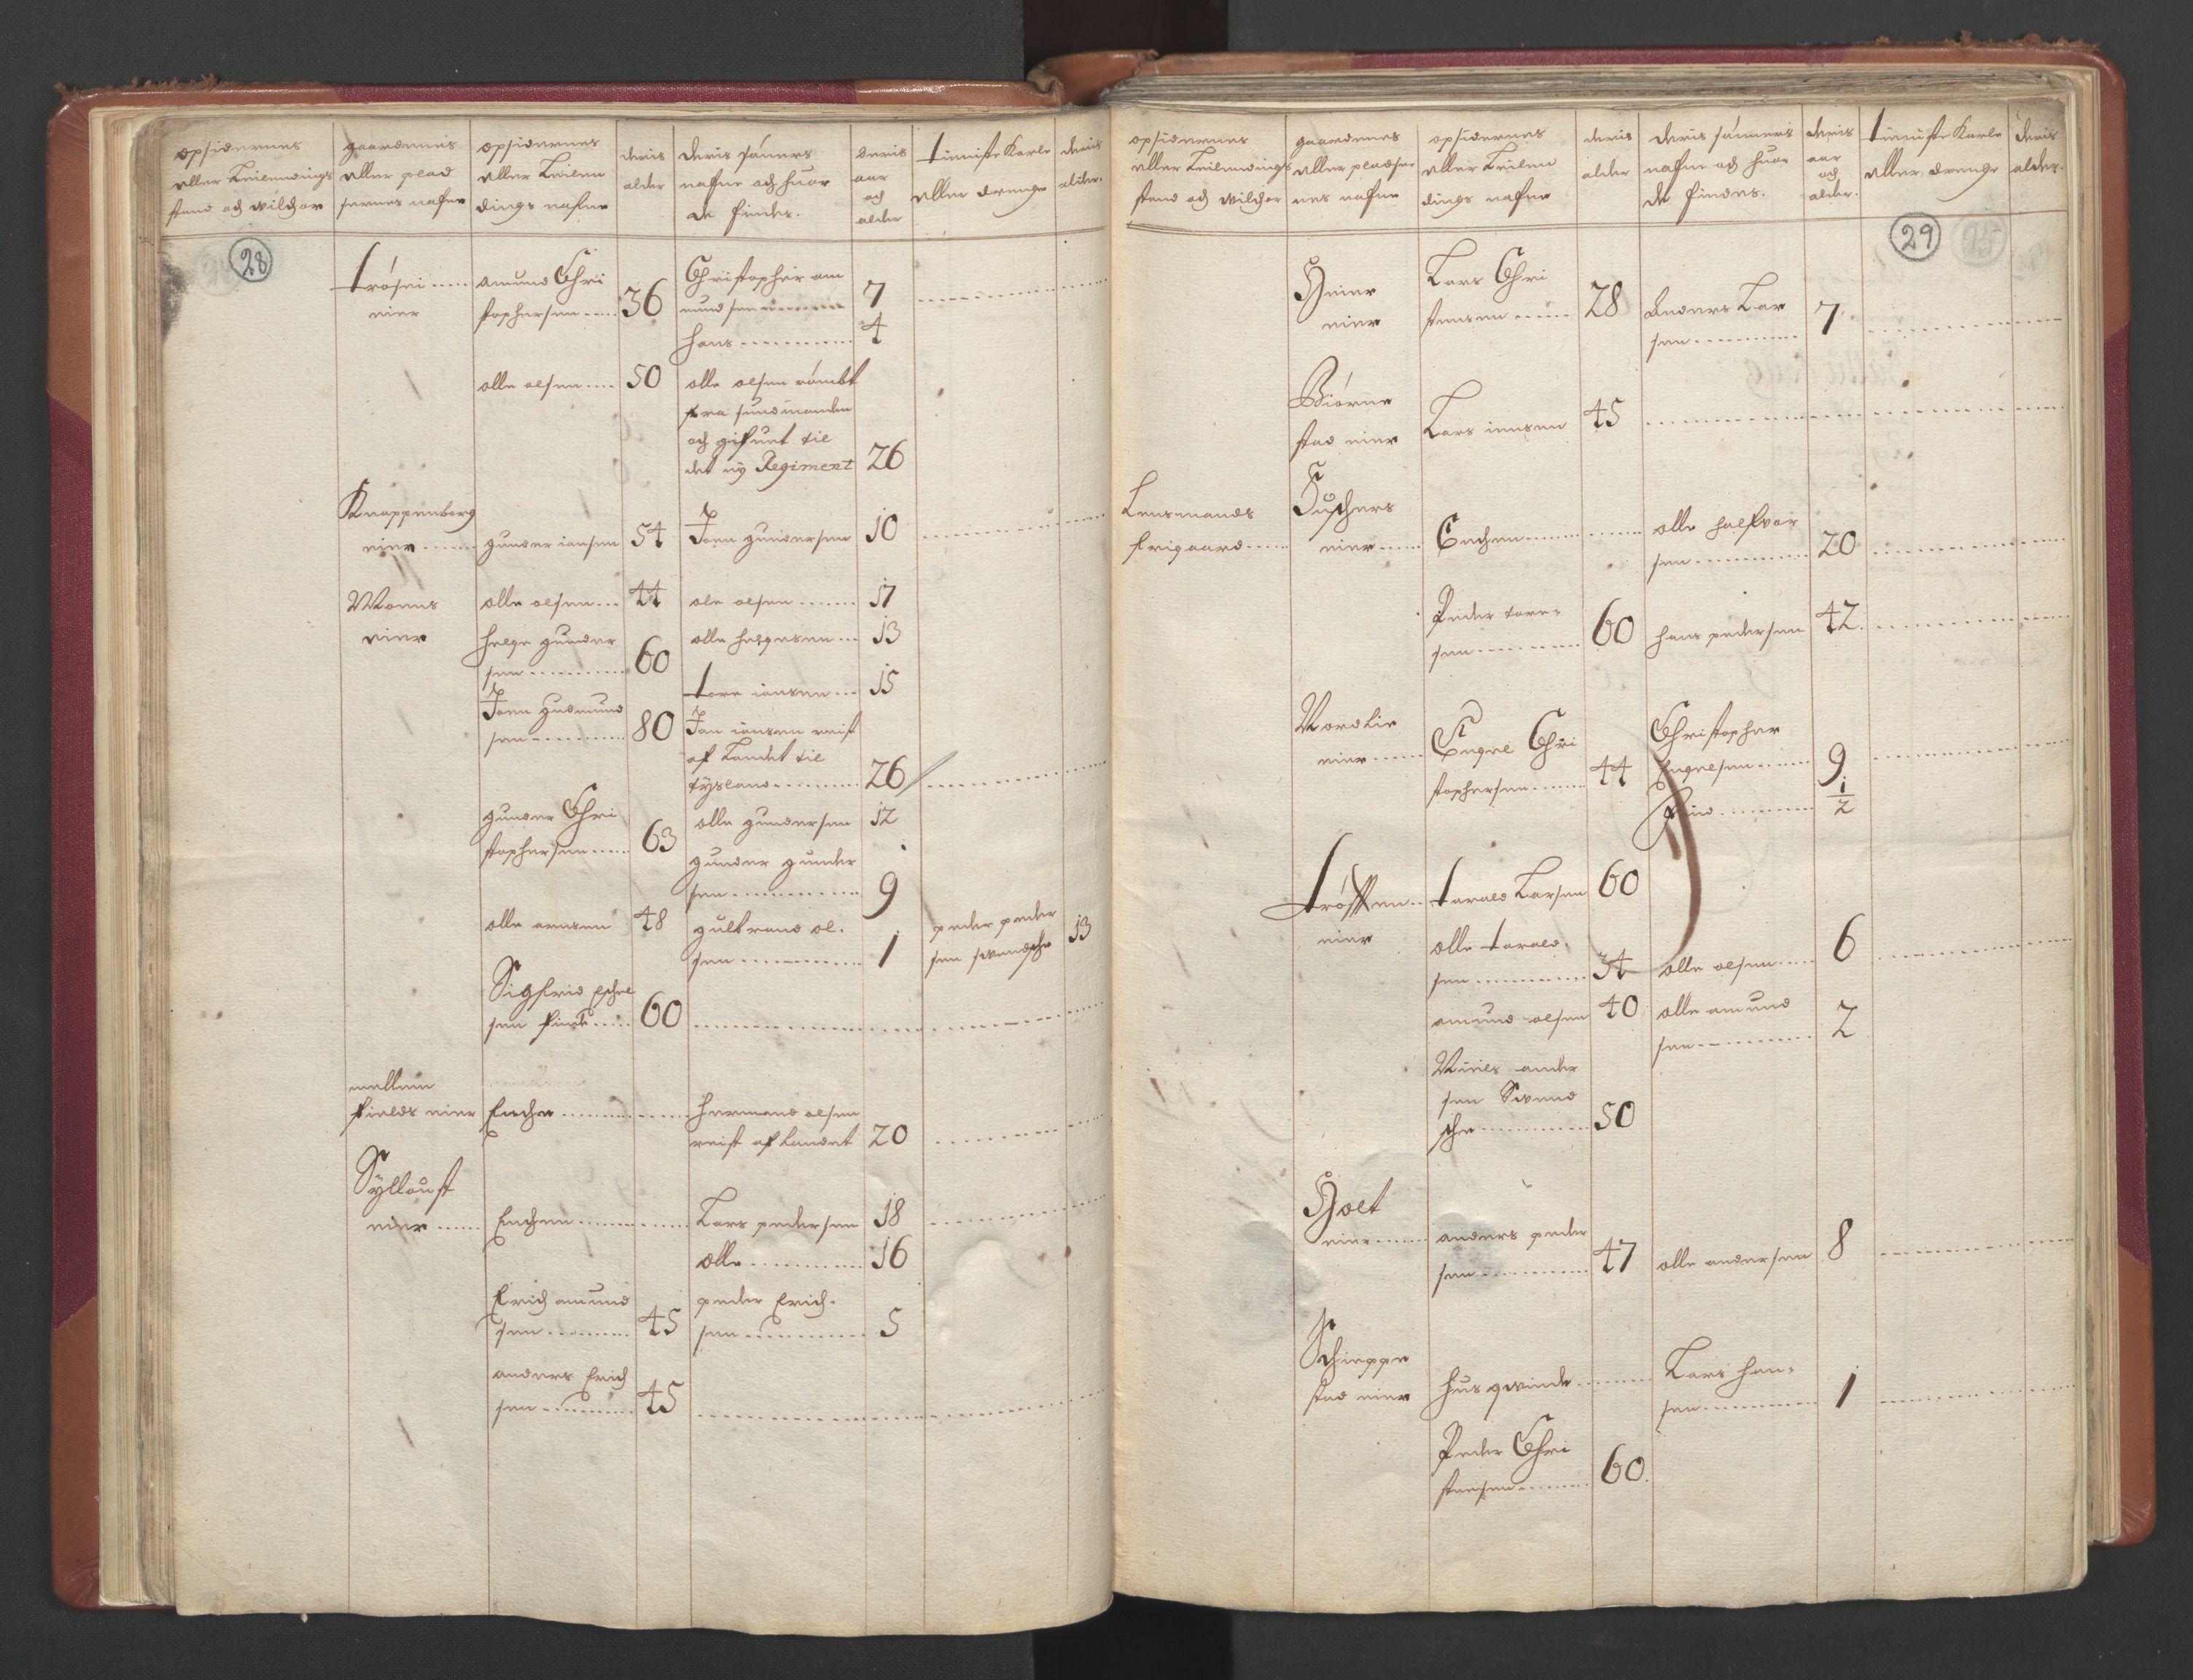 opsidernes
eller Leilendings
stand och wilchor
gaardernis
eller plad
sernes nafne
opsidernes
eller Leilen
dings nafne
deris
alder
deris sönners
nafne och huor
de findes.
deris
aar
och
alder
tieniste Karle
eller drenge
deris
alder.
28
trösei
eier
amund Chri
stophersen
36
Christopher am
mundsen
7
hans
4
olle olsen
50
olle olsen römbt
fra
och gifuet til
det ny Regiment
26
Knappenborg
eier
gunder iensen
54
Joen gundersen
10
Moens
eier
olle olsen
44
ole olsen
17
helge gunder
sen
60
olle helgesen
13
tore iensen
15
Joen gudmund
sen
80
Jon iensen reist
af Landet til
tysland
26
gunder Chri
stophersen
63
olle gundersen
12
gunder gunder
sen
9
olle arnsen
48
gulbrand ol.
sen
1
peder peder
sen swendsche
13
Sigfrid
sen find
60
mellem
fields eier
Encke
hermand olsen
reist af Landet
20
Sylloust
eier
Encken
Lars pedersen
18
olle
16
Erich amund
sen
45
peder Erich.
sen
5
anders Erich
sen
45
opsidernes
eller Leilendings
stand och wilchor
gaardernes
eller pladser
nes nafne
opsidernes
eller Leilen
dings nafne
deris
alder
deris sönners
nafne och huor
de findes.
deris
aar
och
alder.
tieniste Karle
eller drenge
deris
alder.
29
Heier
eier
Lars Chri
stensen
28
Anders Lar
sen
7
Biörne
stad eier
Lars iensen
45
Lensmands
frigaard
eier
Enchen
olle halfvor
sen
20
Peder tore=
sen
60
hans pedersen
42
Nordlie
eier
Engel Chri
stophersen
44
Christopher
Engelsen
9
1/2
trösken
eier
tarald Larsen
60
olle tarald.
sen
34
olle olsen
6
amund olsen
40
olle amund
sen
2
Niels ander
sen Swend
sche
50
Holt
eier
anders peder
sen
47
olle andersen
8
Schieppe
stad eier
husqwinde
Lars han=
sen
1
Peder Chri
stensen
60